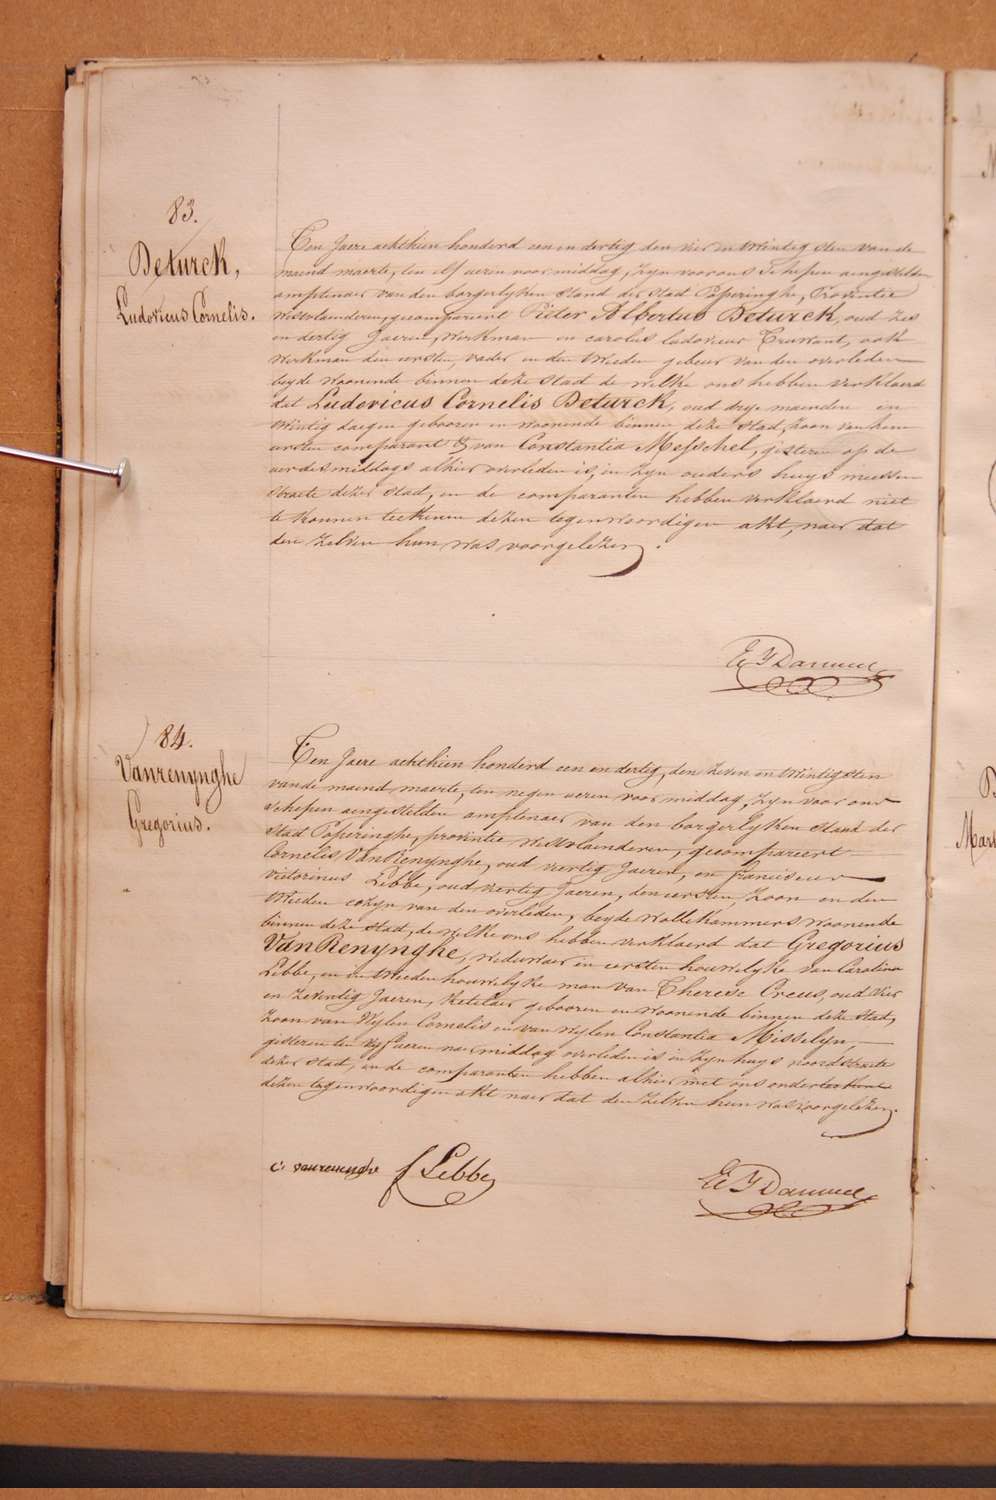 83.
Deturck,
Ludovicus Cornelis.
Ten Jaere achthien honderd een en dertig den vier en twintig sten van de
maend maerte, ten elf ueren voor middag, zyn voor ons Schepen aengestelden
amptenaer van den borgerlyken stand der stad Poperinghe, Provintie
Westvlaenderen, gecompareert Pieter Albertus Deturck, oud zes
en dertig Jaeren, Werkman en carolus ludovicus Truwant, ook
Werkman den eersten, vader en den tweeden gebeur van den overleden
beyde woonende binnen deze stad de welke ons hebben verklaerd
dat Ludovicus Cornelis Deturck, oud drye maenden en
twintig daegen gebooren en woonende binnen deze stad, zoon van den
eersten comparant & van Constantia Messchel, gisteren op de
middags alhier overleden is, in zyn ouders huys
straete dezer stad, en de comparanten hebben verklaerd niet
te konnen teekenen dezen tegenwoordigen akt, naer dat
den zelven hun was voorgelezen.
84.
Vanrenynghe
Gregorius.
Ten Jaere achthien honderd een en dertig, den zeven en twintigsten
vande maend maerte, ten negen ueren voor middag, zyn voor ons
schepen aengestelden amptenaer van den borgerlyken stand der
stad Poperinghe, provintie Westvlaenderen, gecompareert
Cornelis VanRenynghe, oud veertig Jaeren, en franciscus
victorinus Lebbe, oud veertig Jaeren, den eersten, zoon en den
tweeden cozyn van den overleden, beyde wollekammers woonende
binnen deze stad, de welke ons hebben verklaerd dat Gregorius
VanRenynghe, weduwaer in eersten houwelyke van Carolina
Lebbe, en in tweeden houwelyke man van Therese Creus, oud vier
en zeventig Jaeren, ketelaer gebooren en woonende binnen deze stad,
zoon van Wylen Cornelis en van wylen Constantia Misselyn,
gisteren ten vyf ueren naer middag overleden is in zyn huys noordstraete
dezer stad, en de comparanten hebben alhier met ons onderteekent
dezen tegenwoordigen akt naer dat den zelven hun was voorgelezen.
c: vanrenynghe f Lebbe